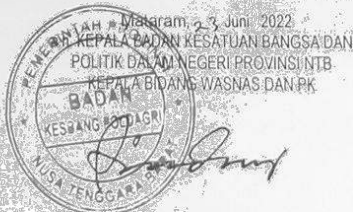 Mataram, 23 Juni 2022
KEPALA BADAN KESATUAN BANGSA DAN
POLITIK DALAM NEGERI PROVINSI NTB
KEPALA BIDANG WASNAS DAN PK
PEMERINTAH
BADAN
KESBANGPOLDAGRI
NUSA TENGGARA